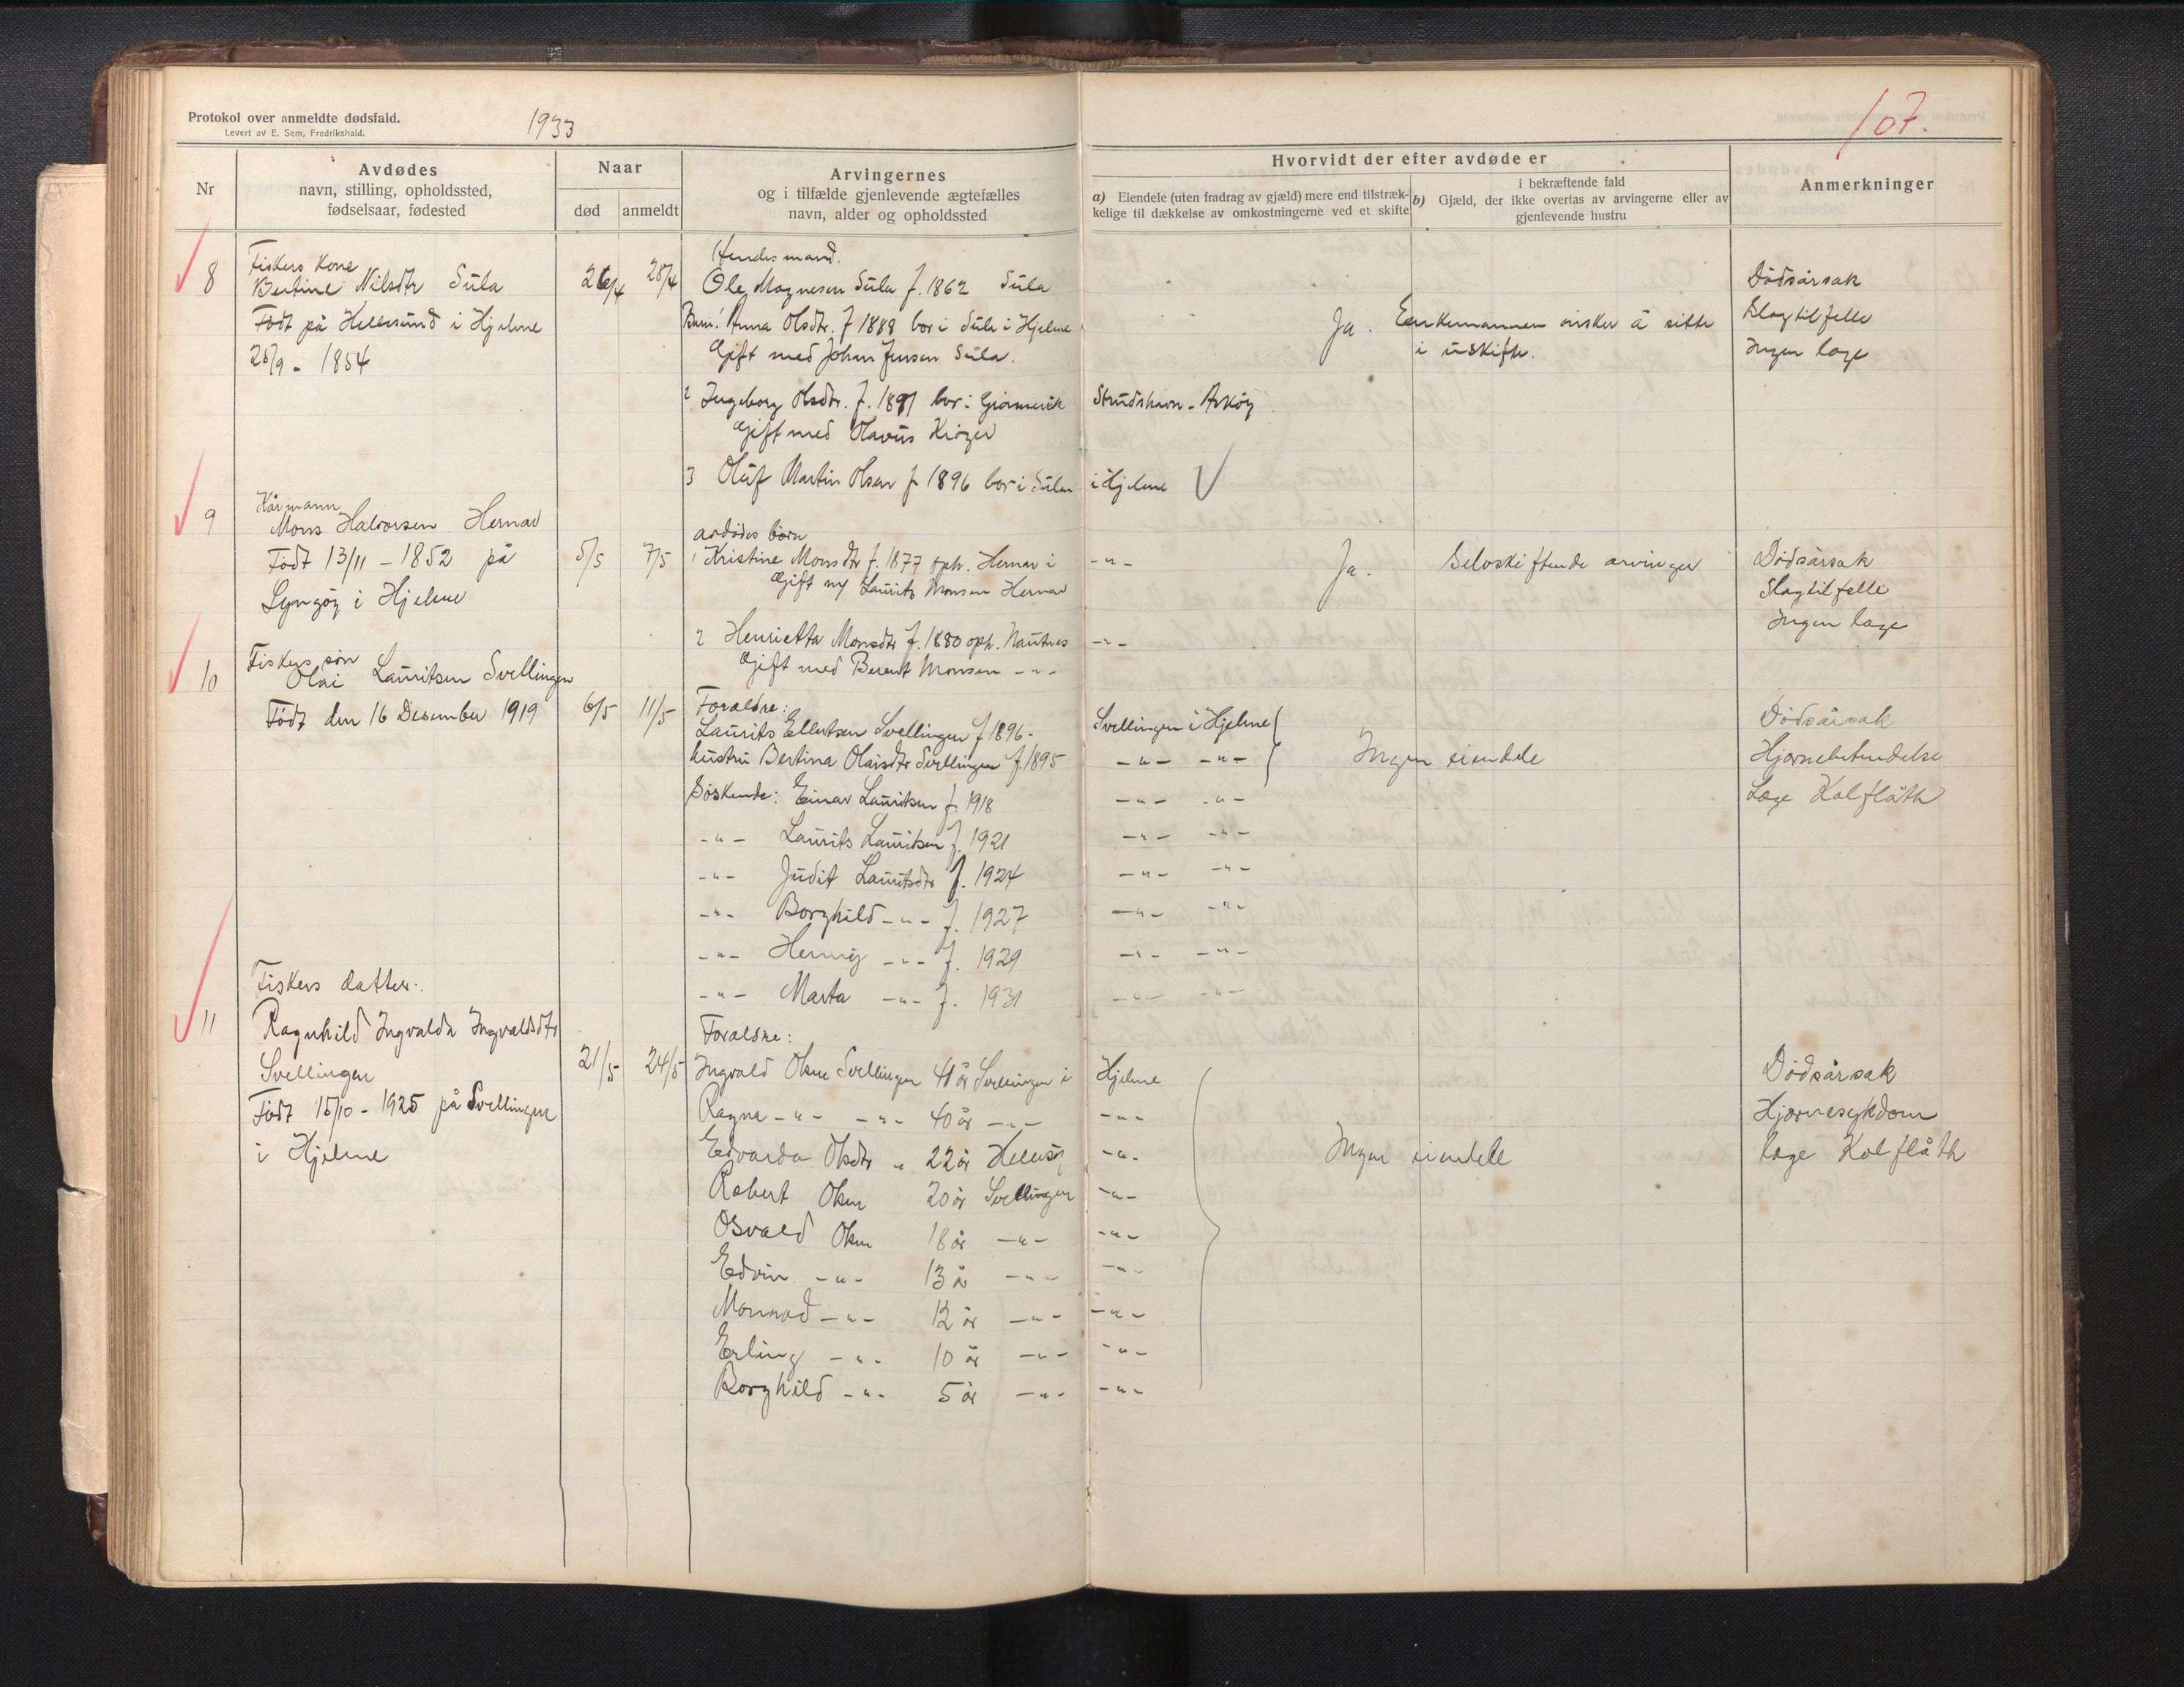 Protokol over anmeldte dødsfald.
Levert av E. Sem, Fredrikshald.
1933
107.
Nr
Avdødes
navn, stilling, opholdssted,
fødselsaar, fødested
Naar
død
anmeldt
Arvingernes
og i tilfælde gjenlevende ægtefælles
navn, alder og opholdssted
Hvorvidt der efter avdøde er
a) Eiendele (uten fradrag av gjæld) mere end tilstræk-
kelige til dækkelse av omkostningerne ved et skifte
i bekræftende fald
b) Gjæld, der ikke overtas av arvingerne eller av
gjenlevende hustru
Anmerkninger
8
Fiskers kone
Bertine Nilsdtr Sula
Født på Hellesund i Hjelme
28/9 - 1854
26/4 28/4
Hendes mand.
Ole Magnesen Sula f. 1862 Sula
Barn: Anna Olsdtr. f 1888 bor i Sula i Hjelme
Gift med Johan Jensen Sula.
2 Ingeborg Olsdtr. f. 1891 bor i Strudshavn - Askøy
Gift med Olavus
3 Oluf Martin Olsen f 1896 bor i Sula i Hjelme
Ja. Enkemannen ønsker å sitte
i uskifte.
Dødsårsak
Slagtilfelle
Ingen læge
9
Kårmann
Mons Halvorsen Hernar
Født 13/11 - 1852 på
Lyngøy i Hjelme
5/5 7/5
avdødes børn
1 Kristine Monsdtr f. 1877 oph. Hernar i -"-
Gift m/ Laurits Monsen Hernar
2 Henrietta Monsdtr f. 1880 oph. Nautnes -"-
Gift med Berent Monsen -"-
Ja. Selvskiftende arvinger
Dødsårsak
Slagtilfelle
Ingen læge
10
Fiskers søn
Olai Lauritsen Svellingen
Født den 16 Desember 1919
6/5 11/5
Foreldre:
Laurits Ellertsen Svellingen f 1896 - Svellingen i Hjelme
hustru Bertina Olaisdtr Svellingen f. 1895 -"- -"-
Søskende: Einar Lauritsen f. 1918 -"- -"-
-"- Laurits Lauritsen f. 1921 -"- -"-
-"- Judit Lauritsdtr f. 1924 -"- -"-
-"- Borghild -"- f. 1927 -"- -"-
-"- Henny -"- f. 1929 -"- -"-
-"- Marta -"- f. 1931 -"- -"-
Ingen eiendele
Dødsårsak
Hjernebetendelse
Læge Kolflåth
11
Fiskers datter.
Ragnhild Ingvalda Ingvaldsdtr
Svellingen
Født 15/10 - 1925 på Svellingen
i Hjelme
21/5 24/5
Foreldre:
Ingvald Olsen Svellingen 41 år Svellingen i Hjelme
Ragna -"- -"- 40 år -"- -"-
Edvarda Olsdtr " 22 år Hellesøy -"-
Robert Olsen 20 år Svellingen -"-
Osvald Olsen 18 år -"- -"-
Edvin -"- 13 år -"- -"-
Monrad -"- 12 år -"- -"-
Erling -"- 10 år -"- -"-
Borghild -"- 5 år -"- -"-
Ingen eiendele
Dødsårsak
Hjernesykdom
læge Kolflåth